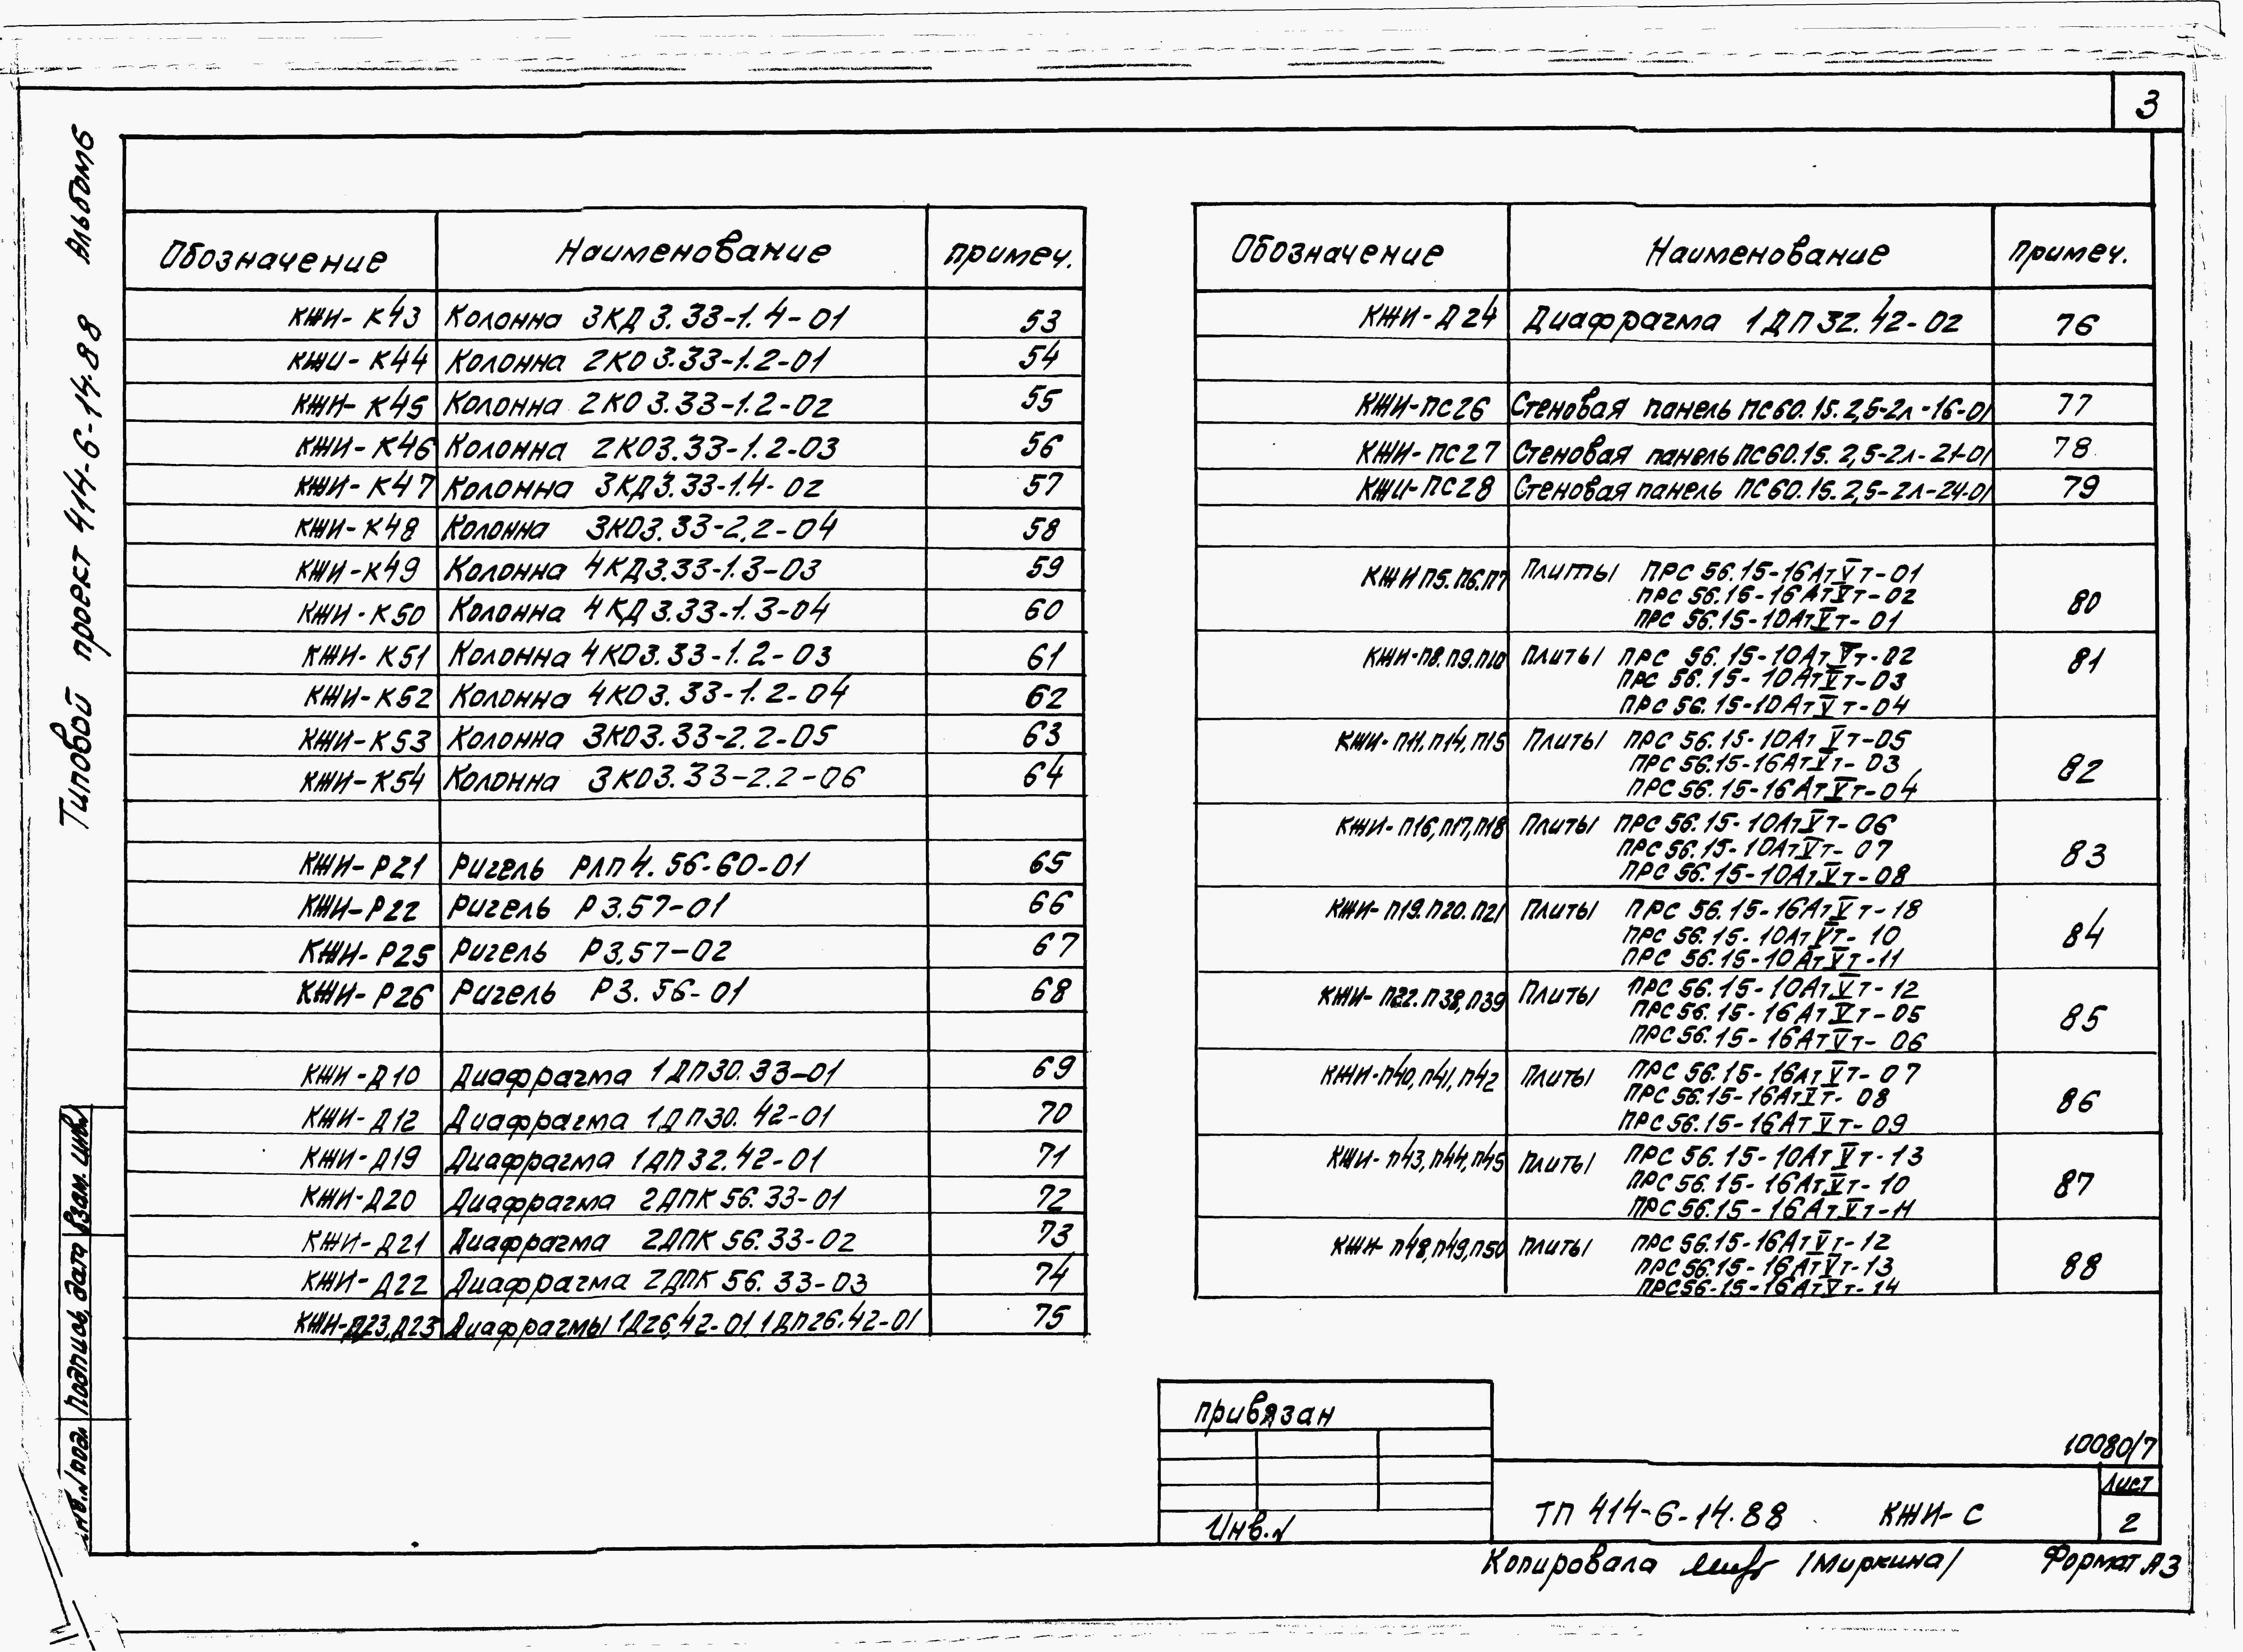 3
Альбом 6
Типовой проект 414-6-14.88
Обозначение Наименование примеч.
КЖИ-К43 Колонна 3КД3.33-1.4-01 53
КЖИ-К44 Колонна 2КО3.33-1.2-01 54
КЖИ-К45 Колонна 2КО3.33-1.2-02 55
КЖИ-К46 Колонна 2КО3.33-1.2-03 56
КЖИ-К47 Колонна 3КД3.33-1.4-02 57
КЖИ-К48 Колонна 3КО3.33-2.2-04 58
КЖИ-К49 Колонна 4КД3.33-1.3-03 59
КЖИ-К50 Колонна 4КД3.33-1.3-04 60
КЖИ-К51 Колонна 4КО3.33-1.2-03 61
КЖИ-К52 Колонна 4КО3.33-1.2-04 62
КЖИ-К53 Колонна 3КО3.33-2.2-05 63
КЖИ-К54 Колонна 3КО3.33-2.2-06 64
КЖИ-Р21 Ригель РЛП4.56-60-01 65
КЖИ-Р22 Ригель Р3.57-01 66
КЖИ-Р25 Ригель Р3.57-02 67
КЖИ-Р26 Ригель Р3.56-01 68
КЖИ-Д10 Диафрагма 1ДП30.33-01 69
КЖИ-Д12 Диафрагма 1ДП30.42-01 70
КЖИ-Д19 Диафрагма 1ДП32.42-01 71
КЖИ-Д20 Диафрагма 2ДПК56.33-01 72
КЖИ-Д21 Диафрагма 2ДПК56.33-02 73
КЖИ-Д22 Диафрагма 2ДПК56.33-03 74
КЖИ-Д23,Д23 Диафрагмы 1Д26.42-01,1ДП26.42-01 75
Обозначение Наименование примеч.
КЖИ-Д24 Диафрагма 1ДП32.42-02 76
КЖИ-ПС26 Стеновая панель ПС60.15.2,5-2л-16-01 77
КЖИ-ПС27 Стеновая панель ПС60.15.2,5-2л-21-01 78
КЖИ-ПС28 Стеновая панель ПС60.15.2,5-2л-24-01 79
КЖИ П5.П6.П7 Плиты ПРС 56.15-16АтⅤт-01
ПРС 56.16-16АтⅤт-02 80
ПРС 56.15-10АтⅤт-01
КЖИ-П8.П9.П10 Плиты ПРС 56.15-10АтⅤт-02 81
ПРС 56.15-10АтⅤт-03
ПРС 56.15-10АтⅤт-04
КЖИ-П11.П14,П15 Плиты ПРС 56.15-10АтⅤт-05
ПРС 56.15-16АтⅤт-03 82
ПРС 56.15-16АтⅤт-04
КЖИ-П16,П17,П18 Плиты ПРС 56.15-10АтⅤт-06
ПРС 56.15-10АтⅤт-07 83
ПРС 56.15-10АтⅤт-08
КЖИ-П19.П20.П21 Плиты ПРС 56.15-16АтⅤт-18
ПРС 56.15-10АтⅤт-10 84
ПРС 56.15-10АтⅤт-11
КЖИ-П22.П38,П39 Плиты ПРС 56.15-10АтⅤт-12
ПРС 56.15-16АтⅤт-05 85
ПРС 56.15-16АтⅤт-06
КЖИ-П40,П41,П42 Плиты ПРС 56.15-16АтⅤт-07
ПРС 56.15-16АтⅤт-08 86
ПРС 56.15-16АтⅤт-09
КЖИ-П43,П44,П45 Плиты ПРС 56.15-10АтⅤт-13
ПРС 56.15-16АтⅤт-10 87
ПРС 56.15-16АтⅤт-11
КЖИ-П48,П49,П50 Плиты ПРС 56.15-16АтⅤт-12
ПРС 56.15-16АтⅤт-13 88
ПРС 56-15-16АтⅤт-14
привязан
Инв.N
10080/7
ТП 414-6-14.88 КЖИ-С
Лист
2
Копировала /Миркина/ Формат А3
Взам. инв.
Подпись, дата
Инв.N подл